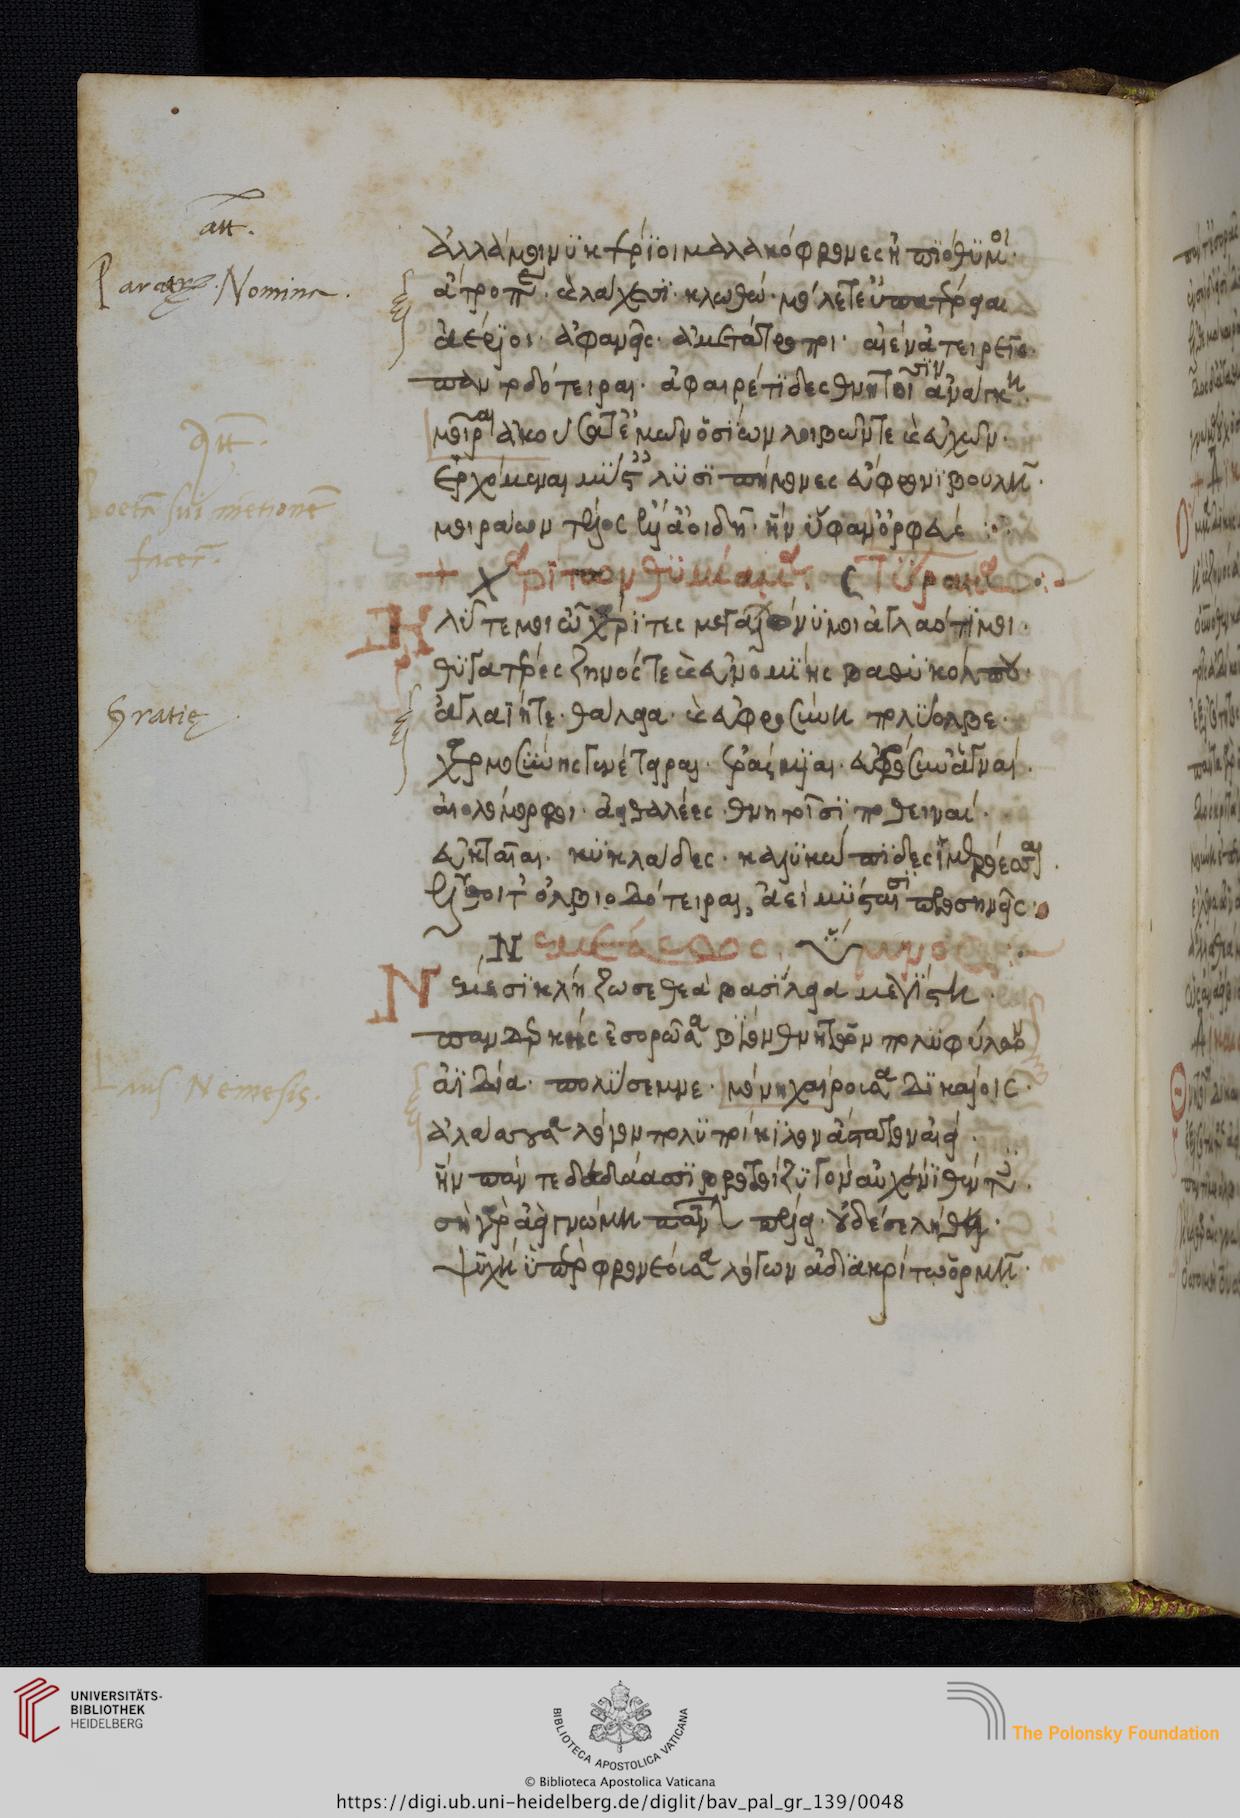 att.
Parcarum Nomina.
ἀλλά μοι νύκτέριοι μαλακόφρονες ἠπιόθυμοι·
ἄτροπε· καὶ λάχεσι· κλωθώ· μόλετ' εὐπατέρειαι
ἀέριοι· ἀφανεῖς· ἀμετάτροποι· αἰὲν ἀτειρεῖς·
παντοδότειραι· ἀφαιρέτιδες θνητοῖσιν ἀνάγκη·
μοῖραι ἀκούσατ' ἐμῶν ὁσίων λοιβῶν τε καὶ εὐχῶν·
ἐρχόμεναι μύσταις λυσιπήμονες εὔφρονι βουλῇ·
μοιράων τέλος ἔλλαβ' ἀοιδή· ἣν ὕφαν' ὀρφεύς
χαρίτων θυμίαμα στύρακα
Κλῦτέ μοι ὦ χάριτες μεγαλώνυμοι ἀγλαότιμοι·
θυγατέρες ζηνός τε καὶ εὐνομίης βαθυκόλπου·
Gratię
ἀγλαΐη τε· θάλεια· καὶ εὐφροσύνη πολύολβε·
χαρμοσύνης γενέτειραι· ἐράσμιαι· εὔφρονες ἁγναί·
αἰολόμορφοι· ἀειθαλέες· θνητοῖσι ποθειναί·
εὐκταῖαι· κυκλάδες· καλυκώπιδες ἱμερόεσσαι·
ἔλθοιτ' ὀλβιοδότειραι, ἀεὶ μύσταισι προσηνεῖς·
Νεμέσεως ὕμνος
Νέμεσι κλῄζω σε θεὰ βασίλεια μεγίστη·
πανδερκὴς ἐσορῶσα βίον θνητῶν πολυφύλων
Laus Nemesis.
ἀϊδία· πολύσεμνε· μόνη χαίρουσα δικαίοις·
ἀλλάσσουσα λόγον πολυποίκιλον ἄστατον αἰεί·
ἣν πάντες δεδίασι βροτοὶ ζυγὸν αὐχένι θέντες·
σοὶ γὰρ ἀεὶ γνώμη πάντων μέλει· οὐδέ σε λήθει·
ψυχὴ ὑπερφρονέουσα λόγων ἀδιακρίτῳ ὁρμῇ·
UNIVERSITÄTS-
BIBLIOTHEK
HEIDELBERG
BIBLIOTECA APOSTOLICA VATICANA
The Polonsky Foundation
© Biblioteca Apostolica Vaticana
https://digi.ub.uni-heidelberg.de/diglit/bav_pal_gr_139/0048